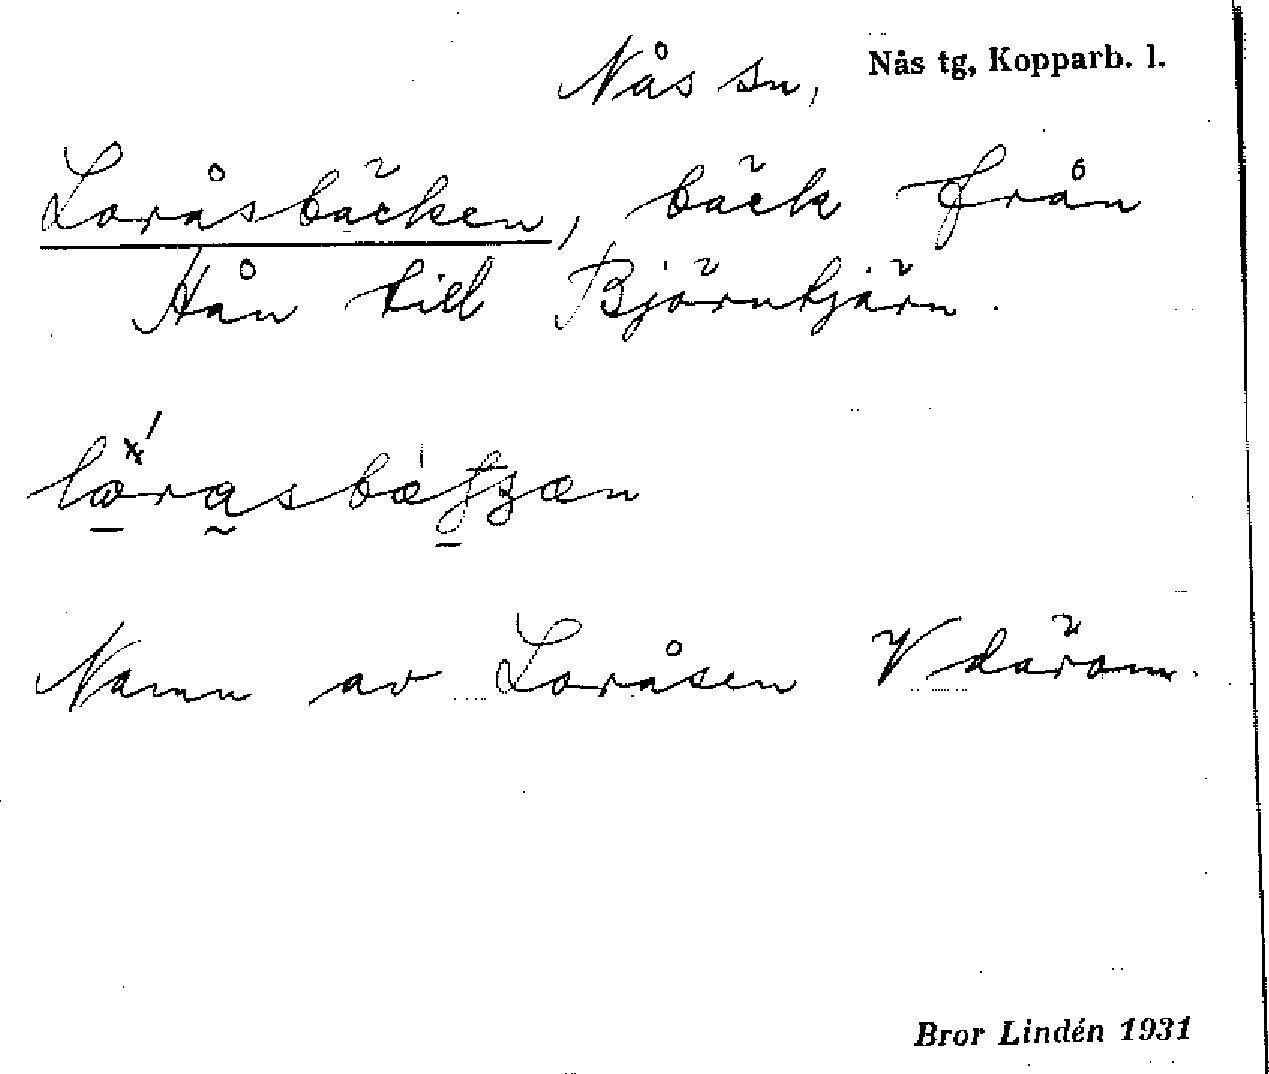 Nås sn, Nås tg, Kopparb. l.
Loråsbäcken, bäck från
Hån till Björntjärn.
Namn av Loråsen V därom.
Bror Lindén 1931